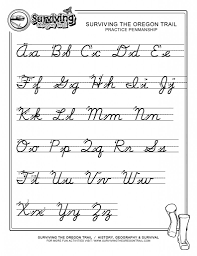 Surviving
SURVIVING THE OREGON TRAIL
PRACTICE PENMANSHIP
Aa Bb Cc Dd Ee
Ff Gg Hh Ii Jj
Kk Ll Mm Nn
Oo Pp Qq Rr Ss
Tt Uu Vv Ww
Xx Yy Zz
SURVIVING THE OREGON TRAIL / HISTORY, GEOGRAPHY & SURVIVAL
FOR MORE FUN ACTIVITIES VISIT / WWW.SURVIVINGTHEOREGONTRAIL.COM